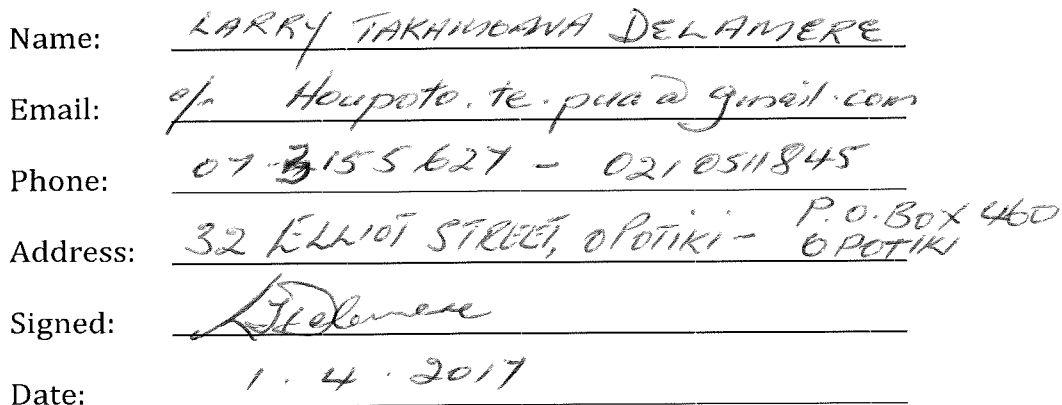 Name: LARRY TAKAHIMOANA DELAMERE
Email: c/- Houpoto.te.pua@gmail.com
Phone: 07-3155627 - 0210511845
Address: 32 ELLIOT STREET, OPOTIKI - P.O. BOX 460 OPOTIKI
Signed: LTDelamere
Date: 1.4.2017